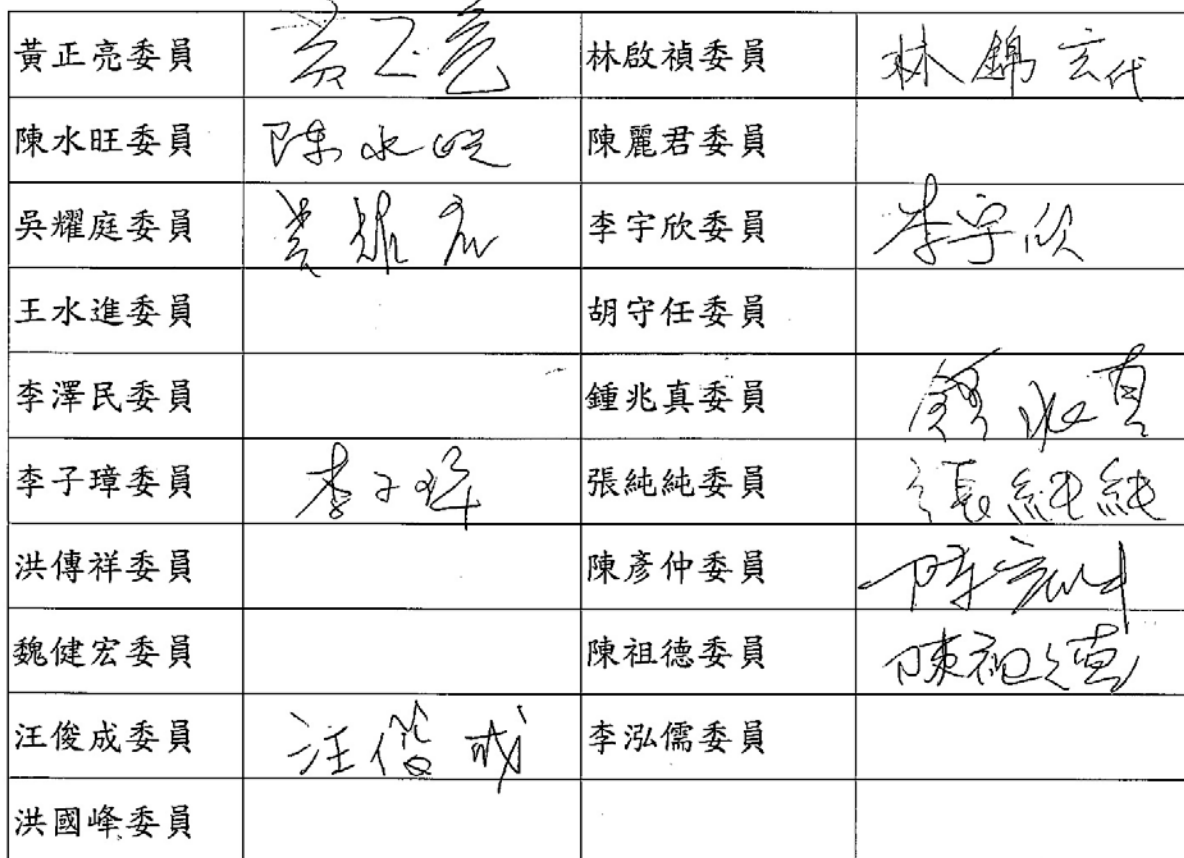 黃正亮委員 黃正亮 林啟禎委員 林錦玄代
陳水旺委員 陳水旺 陳麗君委員
吳耀庭委員 李宇欣委員 李宇欣
王水進委員 胡守任委員
李澤民委員 鍾兆真委員 鍾兆真
李子璋委員 李子璋 張純純委員 張純純
洪傳祥委員 陳彥仲委員 陳彥仲
魏健宏委員 陳祖德委員 陳祖德
汪俊成委員 汪俊成 李泓儒委員
洪國峰委員